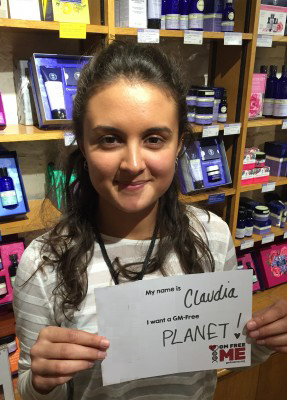 My name is Claudia
I want a GM-Free
PLANET!
GM FREE
ME